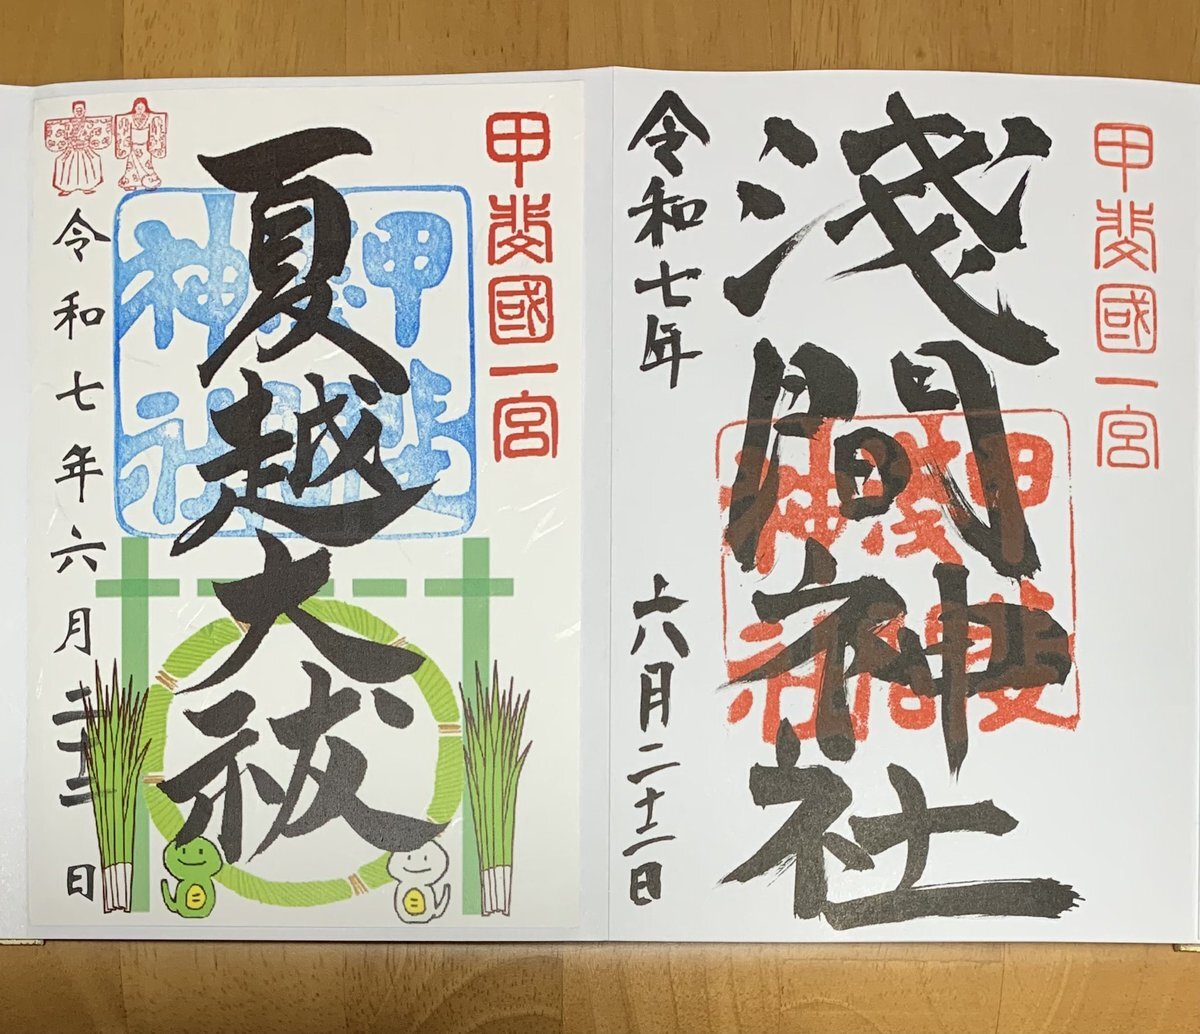 甲斐國一宮
淺間神社
甲斐
淺間
神社
令和七年
六月二十二日
甲斐國一宮
夏越大祓
甲斐
淺間
神社
令和七年六月二十二日